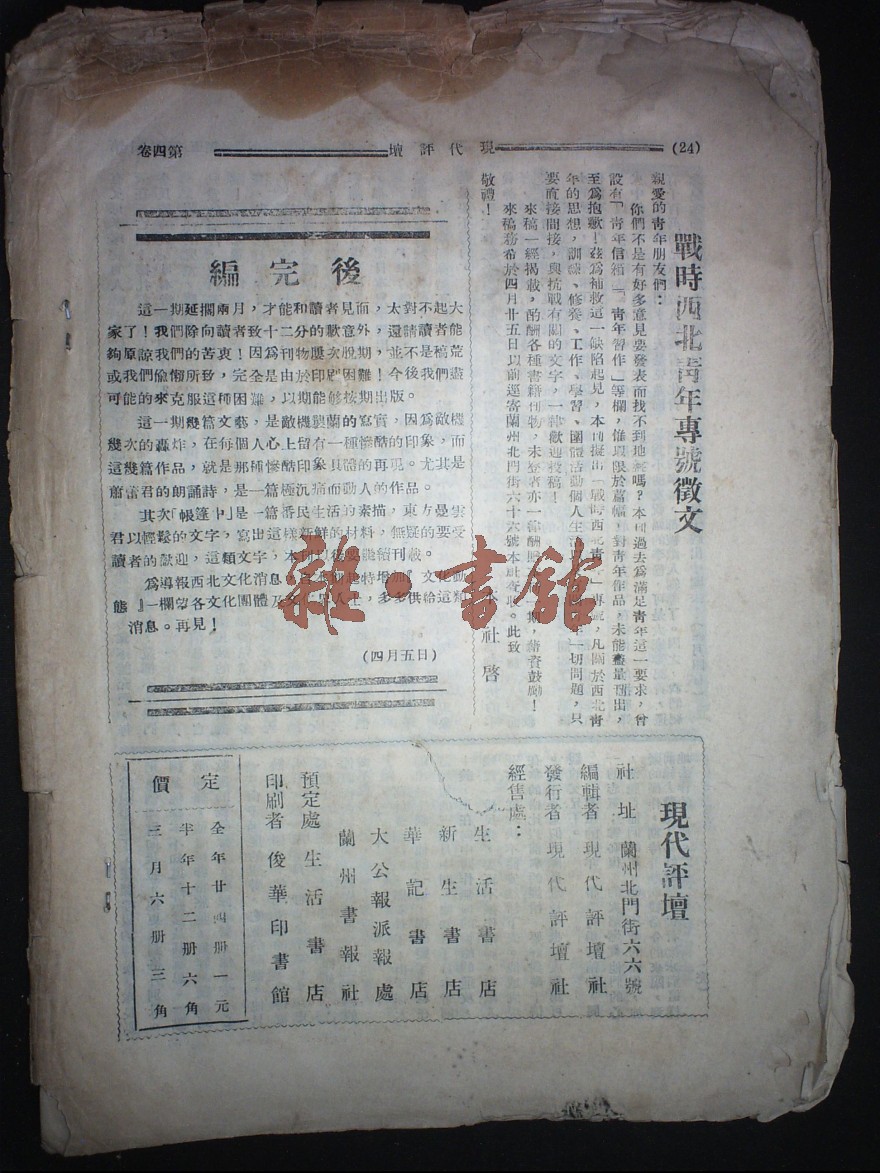 (24) 現代評壇 第四卷
戰時西北青年專號徵文
親愛的青年朋友們：
你們不是有好多意見要發表而找不到地嗎？本刊過去為滿足青年這一要求，曾
設有「青年信箱」「青年習作」等欄，惟限於篇幅，對青年作品，未能盡量刊出，
至為抱歉！茲為補救這一缺陷起見，本刊擬出「戰時西北青」專號，凡關於西北青
年的思想，訓練、修養、工作、學習、團體活動個人生活一切問題，只
要直接間接，與抗戰有關的文字，一律歡迎投稿！
來稿一經揭載，酌酬各種書籍刊物，未登者亦一律酬期，藉資鼓勵！
來稿務希於四月廿五日以前逕寄蘭州北門街六十六號本社。此致
敬禮！
社啓
編完後
這一期延擱兩月，才能和讀者見面，太對不起大
家了！我們除向讀者致十二分的歉意外，還請讀者能
夠原諒我們的苦衷！因為刊物屢次脫期，並不是稿荒
或我們偷懶所致，完全是由於印刷困難！今後我們盡
可能的來克服這種困難，以期能夠按期出版。
這一期幾篇文藝，是敵機襲蘭的寫實，因為敵機
幾次的轟炸，在每個人心上留有一種慘酷的印象，而
這幾篇作品，就是那種慘酷印象具體的再現。尤其是
蕾君的朗誦詩，是一篇極沉痛而動人的作品。
其次「帳篷中」是一篇番民生活的素描，東方曼雲
君以輕鬆的文字，寫出這樣新鮮的材料，無疑的要受
讀者的歡迎，這類文字，本刊以後要繼續刊載。
為導報西北文化消息，本期起特增加『文化動
態』一欄望各文化團體及文化界人士，多多供給這類
消息。再見！
(四月五日)
現代評壇
社址 蘭州北門街六六號
編輯者 現代評壇社
發行者 現代評壇社
經售處：
生活書店
新生書店
華記書店
大公報派報處
蘭州書報社
預定處 生活書店
印刷者 俊華印書館
定價
全年廿四册一元
半年十二册六角
三月六册三角
雜·書館